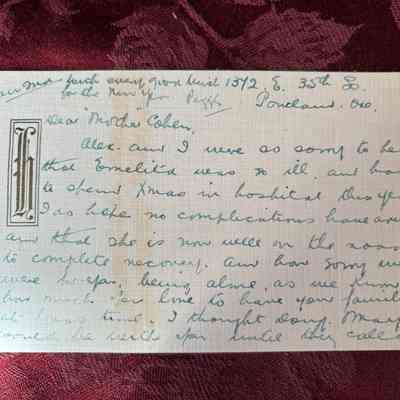 with every good wish 1372. E. 35th So.
for the New Year Peggy Portland. Ore.
H
Dear "Mother" Cohen,
Alex. and I were so sorry to he
that Esmelita was so ill, and had
to spend Xmas in hospital this ye
I do hope no complications have ari
and that she is now well on the road
to complete recovery. And how sorry we
were for you, being alone, as we know
how much you love to have your famil
at Xmas time. I thought Doug. Mary
would be with you until they called